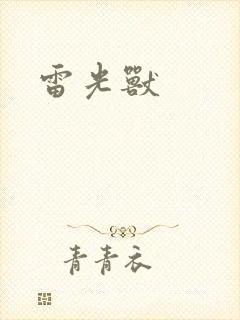 雷光獸
青青衣